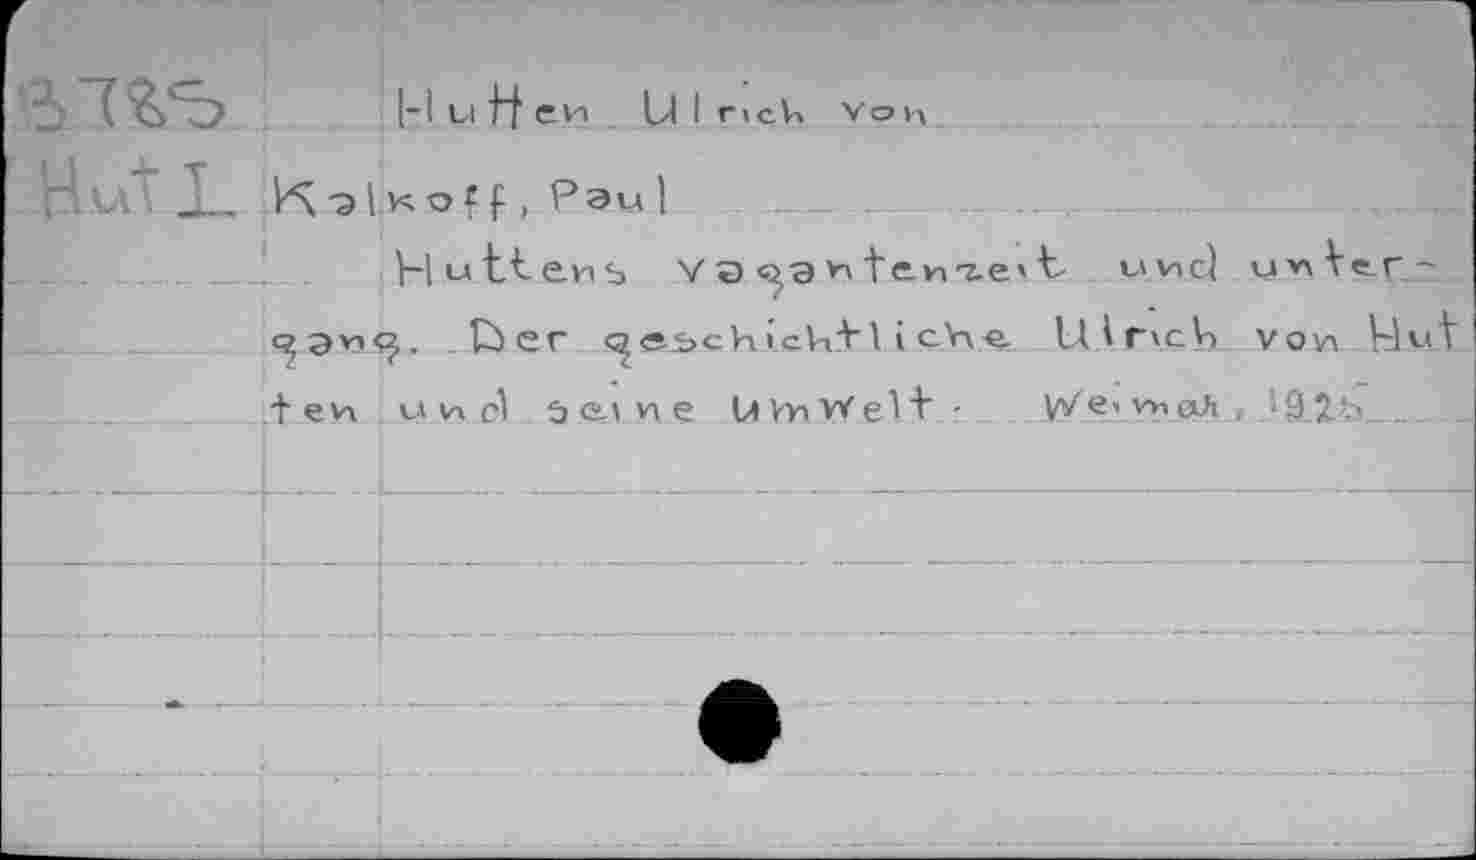 B785 Hutten Ulrich von
HutI Kalkoff, Paul
Huttens Vagantenzeit und unter-
gang. Der geschichtliche Ulrich von Hut
ten und seine Umwelt. Weimar, 1925